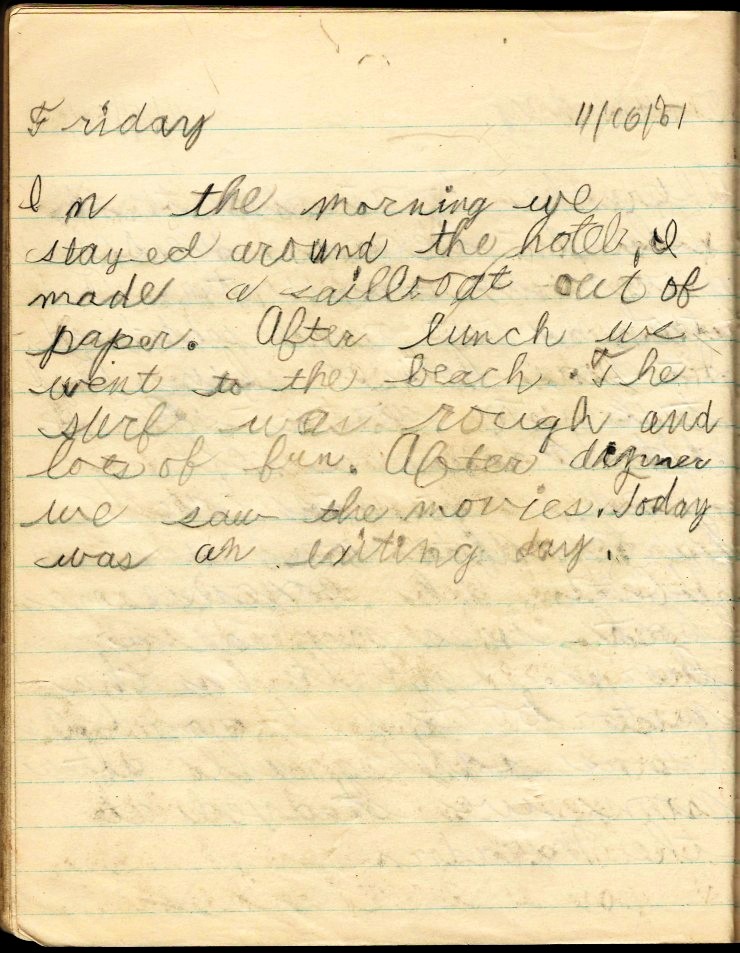 Friday 11/16/51
In the morning we
stayed around the hotel, I
made a sailboat out of
paper. After lunch we
went to the beach. The
surf was rough and
lots of fun. After dinner
we saw the movies. Today
was an exiting day.